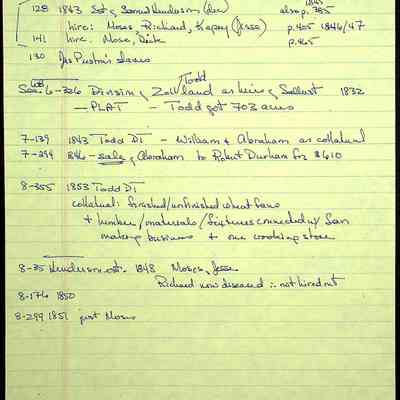 128 1843 Est of Samuel Henderson (dec) also p. 385
hire: Moses, Richard, (Jesse) p. 405 1846/47
141 hire: Mose, Dick p. 465
130 Jas slaves
6-326 Division of Todd land as heirs of 1832
— PLAT — Todd got 703 acres
7-139 1843 Todd DT - William & Abraham as collateral
7-294 1846 - sale of Abraham to Robert Durham for $610
8-355 1853 Todd DT
collateral: finished/unfinished wheat fans
+ lumber/materials/fixtures connected w/ fan
making business + one cooking stove
8-35 Henderson est. 1848 Moses, Jesse
Richard now diseased ∴ not hired out
8-176 1850
8-299 1851 just Moses